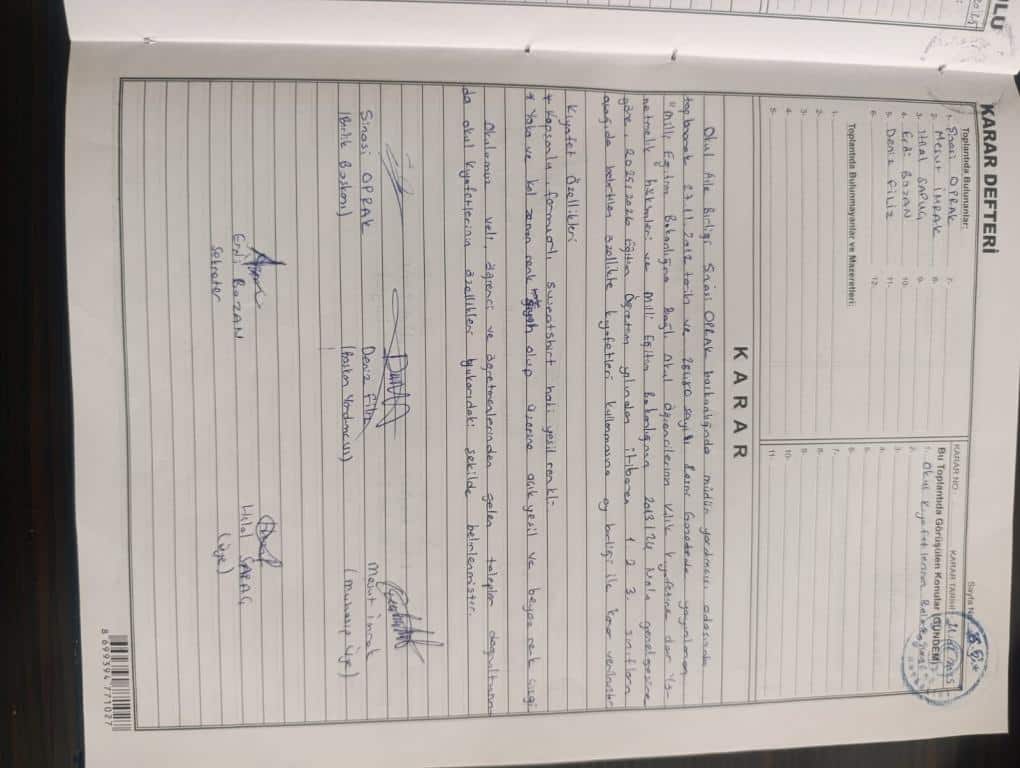 KARAR DEFTERİ
Sayfa No
Toplantıda Bulunanlar:
1. Sinasi OPRAK
2. Mesut IMRAK
3. Hilal SARAÇ
4. Erdi BAZAN
5. Deniz Filiz
6.
7.
8.
9.
10.
11.
12.
Toplantıda Bulunmayanlar ve Mazeretleri:
1.
2.
3.
4.
5.
KARAR NO :
KARAR TARİHİ
Bu Toplantıda Görüşülen Konular (GÜNDEM)
1. Okul Kıyafetlerinin Belirlenmesi
2.
3.
4.
5.
6.
7.
8.
9.
10.
11.
K A R A R
Okul Aile Birliği Sinasi OPRAK başkanlığında müdür yardımcısı odasında
toplanarak 27.11.2012 tarihi ve 28480 sayılı Resmi Gazetede yayınlanan
"Milli Eğitim Bakanlığına Bağlı okul öğrencilerinin kılık kıyafetine dair Yö-
netmelik hükümleri ve Milli Eğitim Bakanlığının 2013/24 Nolu genelgesine
göre, 2025/2026 Eğitim Öğretim yılından itibaren 1. 2. 3. sınıfların
aşağıda belirtilen özellikte kıyafetleri kullanmasına oy birliği ile karar verilmiştir
Kıyafet Özellikleri
* Kapşonlu, formaorlı, sweatshirt haki yeşil renkli.
* Yaka ve kol zemin renk olup üzerine açık yeşil ve beyaz renk çizgi
Okulumuz veli, öğrenci ve öğretmenlerinden gelen talepler doğrultusun-
da okul kıyafetlerinin özellikleri yukarıdaki şekilde belirlenmiştir.
Sinasi OPRAK
(Birlik Başkanı)
Deniz Filiz
(Başkan Yardımcısı)
Mesut imrak
(Muhasip Üye)
Erdi BAZAN
Sekreter
Hilal SARAÇ
(Üye)
8 699394 771027